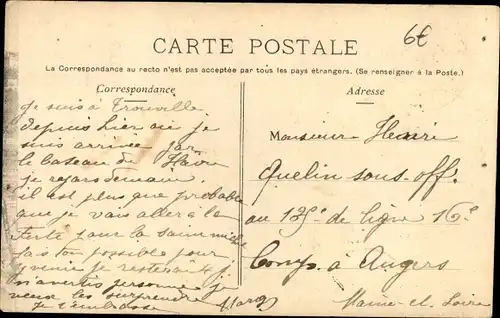 6€
CARTE POSTALE
La Correspondance au recto n'est pas acceptée par tous les pays étrangers. (Se renseigner à la Poste.)
Correspondance
Je suis à Trouville
depuis hier où je
suis arrivée par
le bateau du Havre
je repars demain.
il est plus que probable
que je vais aller à la
Ferté pour la saint michel
fais ton possible pour
y venir je resterai 4 j.
n'avertis personne je
veux les surprendre
Je t'embrasse
Adresse
Monsieur Henri
Quelin sous-off.
au 135e de ligne 16e
Comp. à Angers
Maine-et-Loire